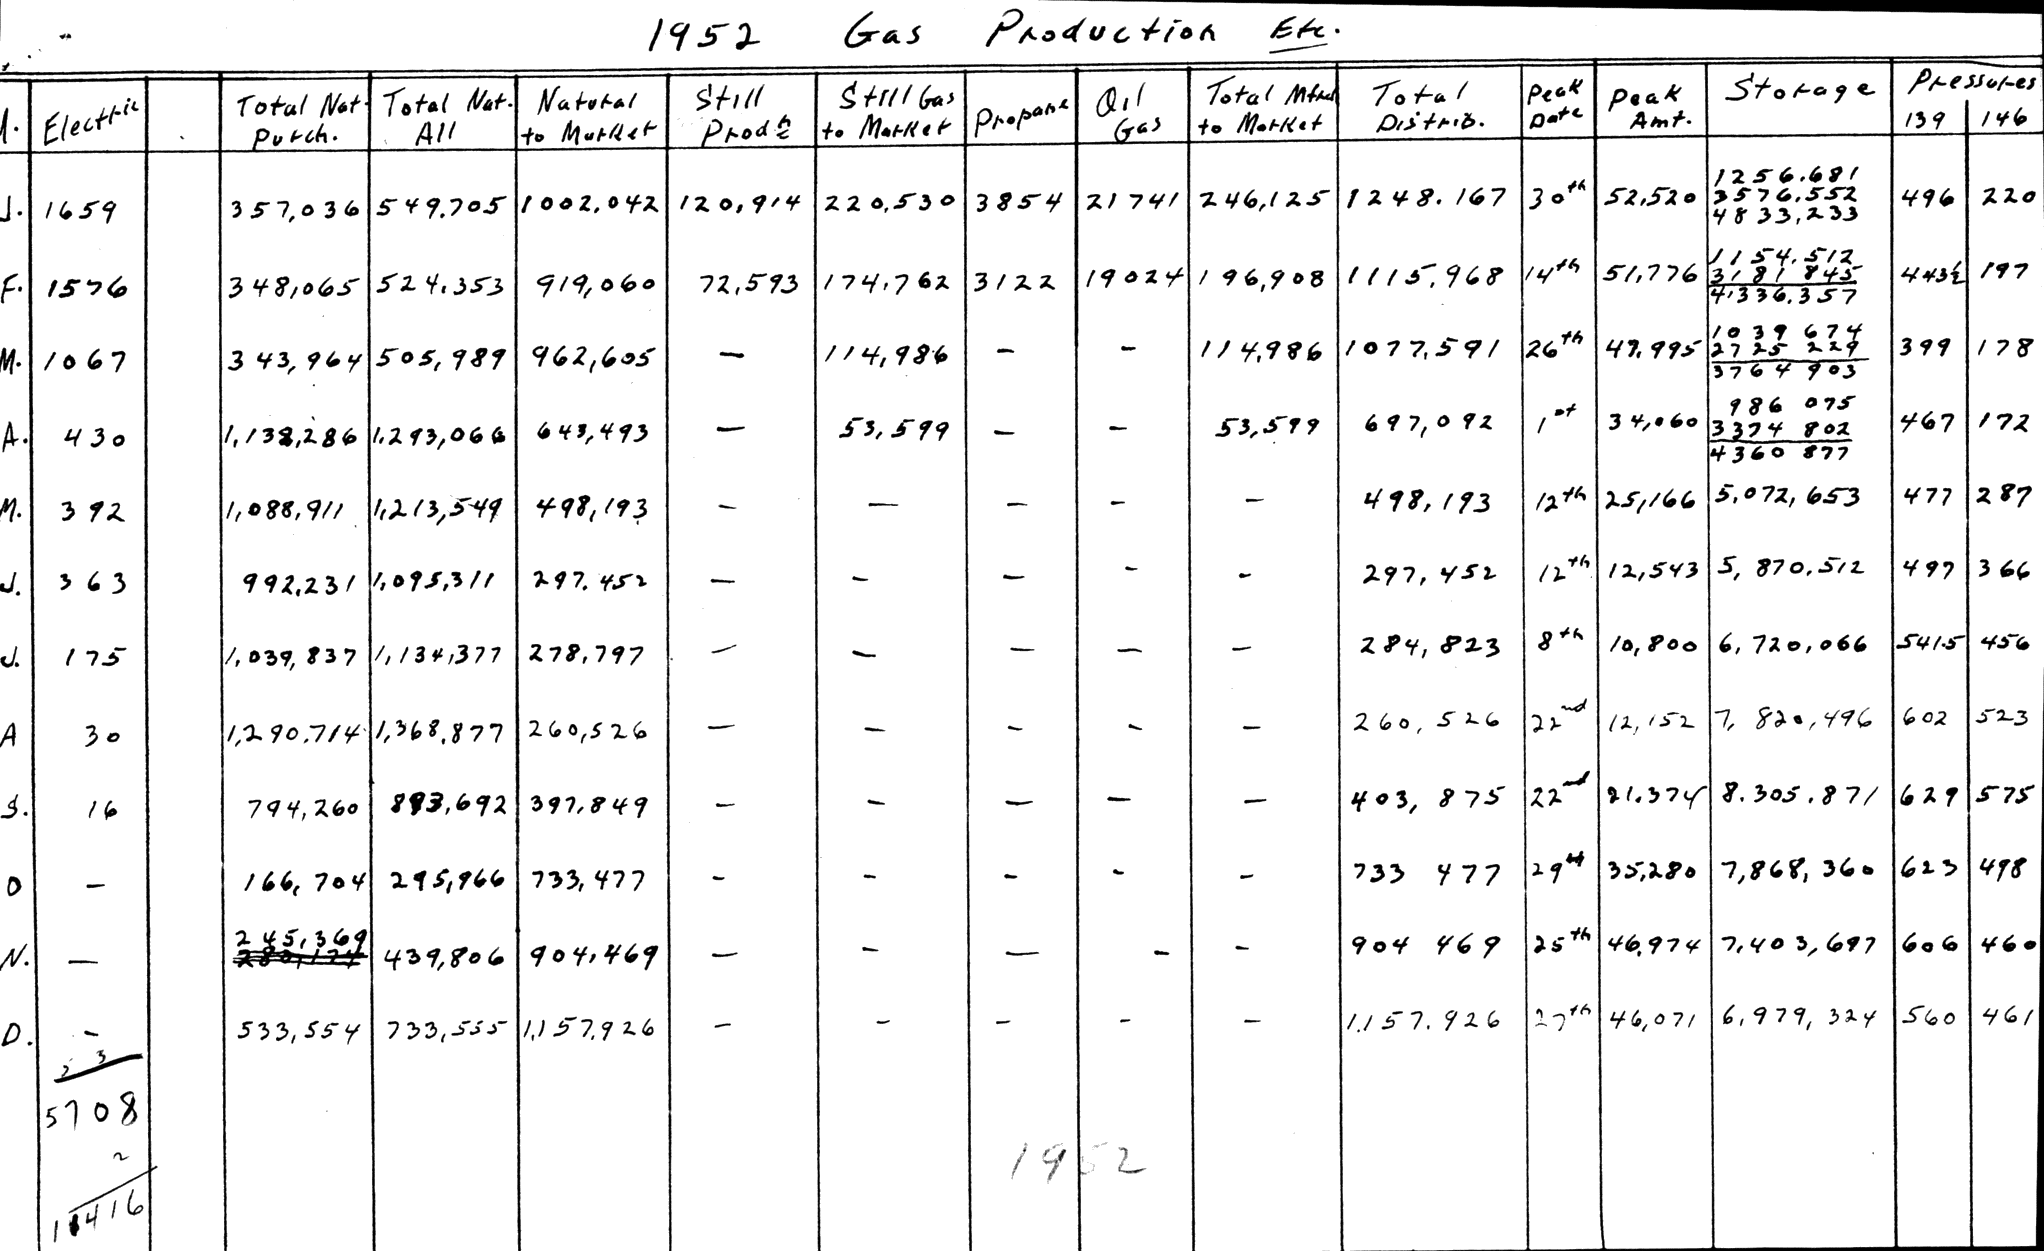 1952 Gas Production Etc.
M. Electric Total Nat. Purch. Total Nat. All Natural to Market Still Prodn Still Gas to Market Propane Oil Gas Total Mfrd to Market Total Distrib. Peak Date Peak Amt. Storage Pressures 139 146
1256.681
J. 1659 357,036 549.705 1002,042 120,914 220,530 3854 21741 246,125 1248.167 30th 52,520 3576,552 496 220
4833,233
1154,512
F. 1576 348,065 524,353 919,060 72,593 174,762 3122 19024 196,908 1115,968 14th 51,776 3181 845 443½ 197
4,336,357
1039 674
M. 1067 343,964 505,989 962,605 — 114,986 — — 114,986 1077,591 26th 49,995 2725 229 399 178
3764 903
986 075
A. 430 1,138,286 1,293,066 643,493 — 53,599 — — 53,599 697,092 1st 34,060 3374 802 467 172
4360 877
M. 392 1,088,911 1,213,549 498,193 — — — — — 498,193 12th 25,166 5,072,653 477 287
J. 363 992,231 1,095,311 297,452 — — — — — 297,452 12th 12,543 5,870,512 497 366
J. 175 1,039,837 1,134,377 278,797 — — — — — 284,823 8th 10,800 6,720,066 541.5 456
A 30 1,290,714 1,368,877 260,526 — — — — — 260,526 22nd 12,152 7,820,496 602 523
S. 16 794,260 893,692 397,849 — — — — — 403,875 22nd 21,374 8.305.871 629 575
O — 166,704 295,966 733,477 — — — — — 733 477 29th 35,280 7,868,360 623 498
245,369
N. — 439,806 904,469 — — — — — 904 469 25th 46,974 7,403,697 606 460
D. — 533,554 733,555 1,157,926 — — — — — 1,157,926 27th 46,071 6,979,324 560 461
2 3
5708
2
11416
1952